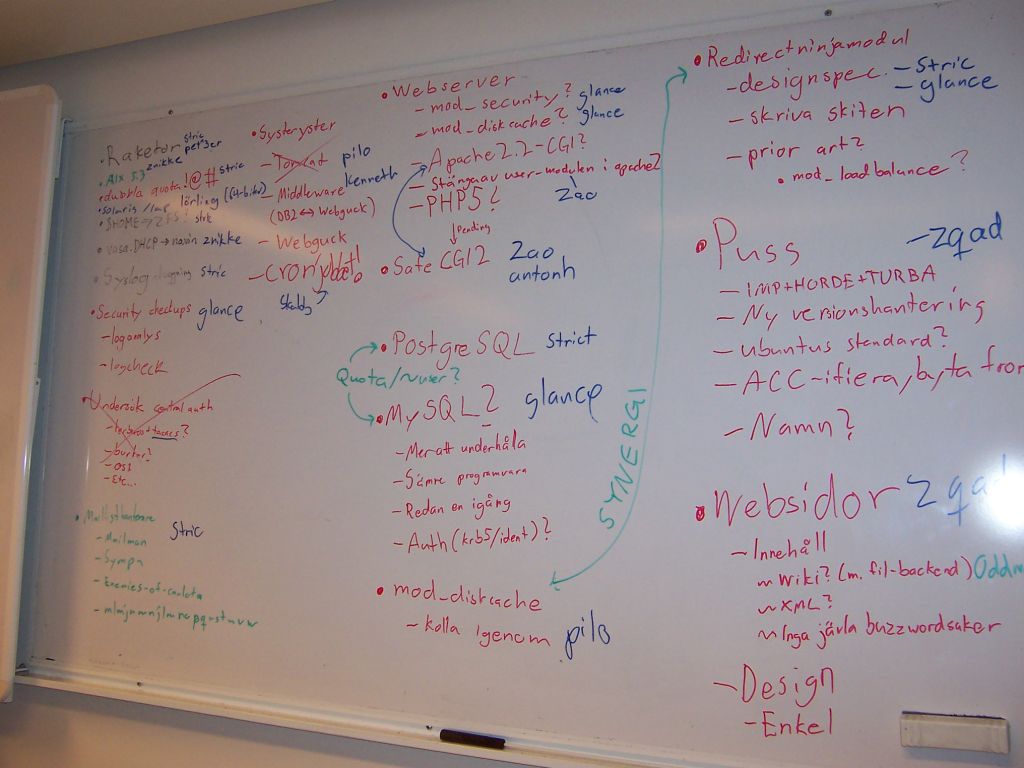 • Raketor stric pet3er
• AIX 5.3 znikke
• dubbla quota! @# stric
• solaris / lörling (64-bitar)
• $HOME → ZFS! stric
• vasa. DHCP → navin znikke
• Syslog stric
• Security checkups glance
- loganalys
- logcheck
• Undersök central auth
- tacacs?
- burtar?
- OSS
- Etc...
• stric
- Mailman
- Sympa
- Enemies-of-carlota
• Systeryster
- Tomcat pilo
- Middleware kenneth
(DB2 ↔ Webguck)
- Webguck
- cron
• Webserver
- mod_security? glance
- mod_diskcache? glance
- Apache 2.2-CGI?
- Stänga av user-modulen i apache2
Zao
- PHP5?
↓ Pending
• Safe CGI 2 Zao
antonh
• PostgreSQL strict
Quota/~user?
• MySQL? glance
- Mer att underhålla
- Sämre programvara
- Redan en igång
- Auth (krb5/ident)?
• mod_diskcache
- kolla igenom pilo
SYNERGI
• Redirectninjamodul
- designspec. - Stric
- glance
- skriva skiten
- prior art?
• mod_loadbalance?
• Puss - zqad
- IMP+HORDE+TURBA
- Ny versionshantering
- ubuntus standard?
- ACC-ifiera, byta from
- Namn?
• Websidor zqad
- Innehåll
~ Wiki? (m. fil-backend)
~ XML?
~ Inga jävla buzzwordsaker
- Design
- Enkel